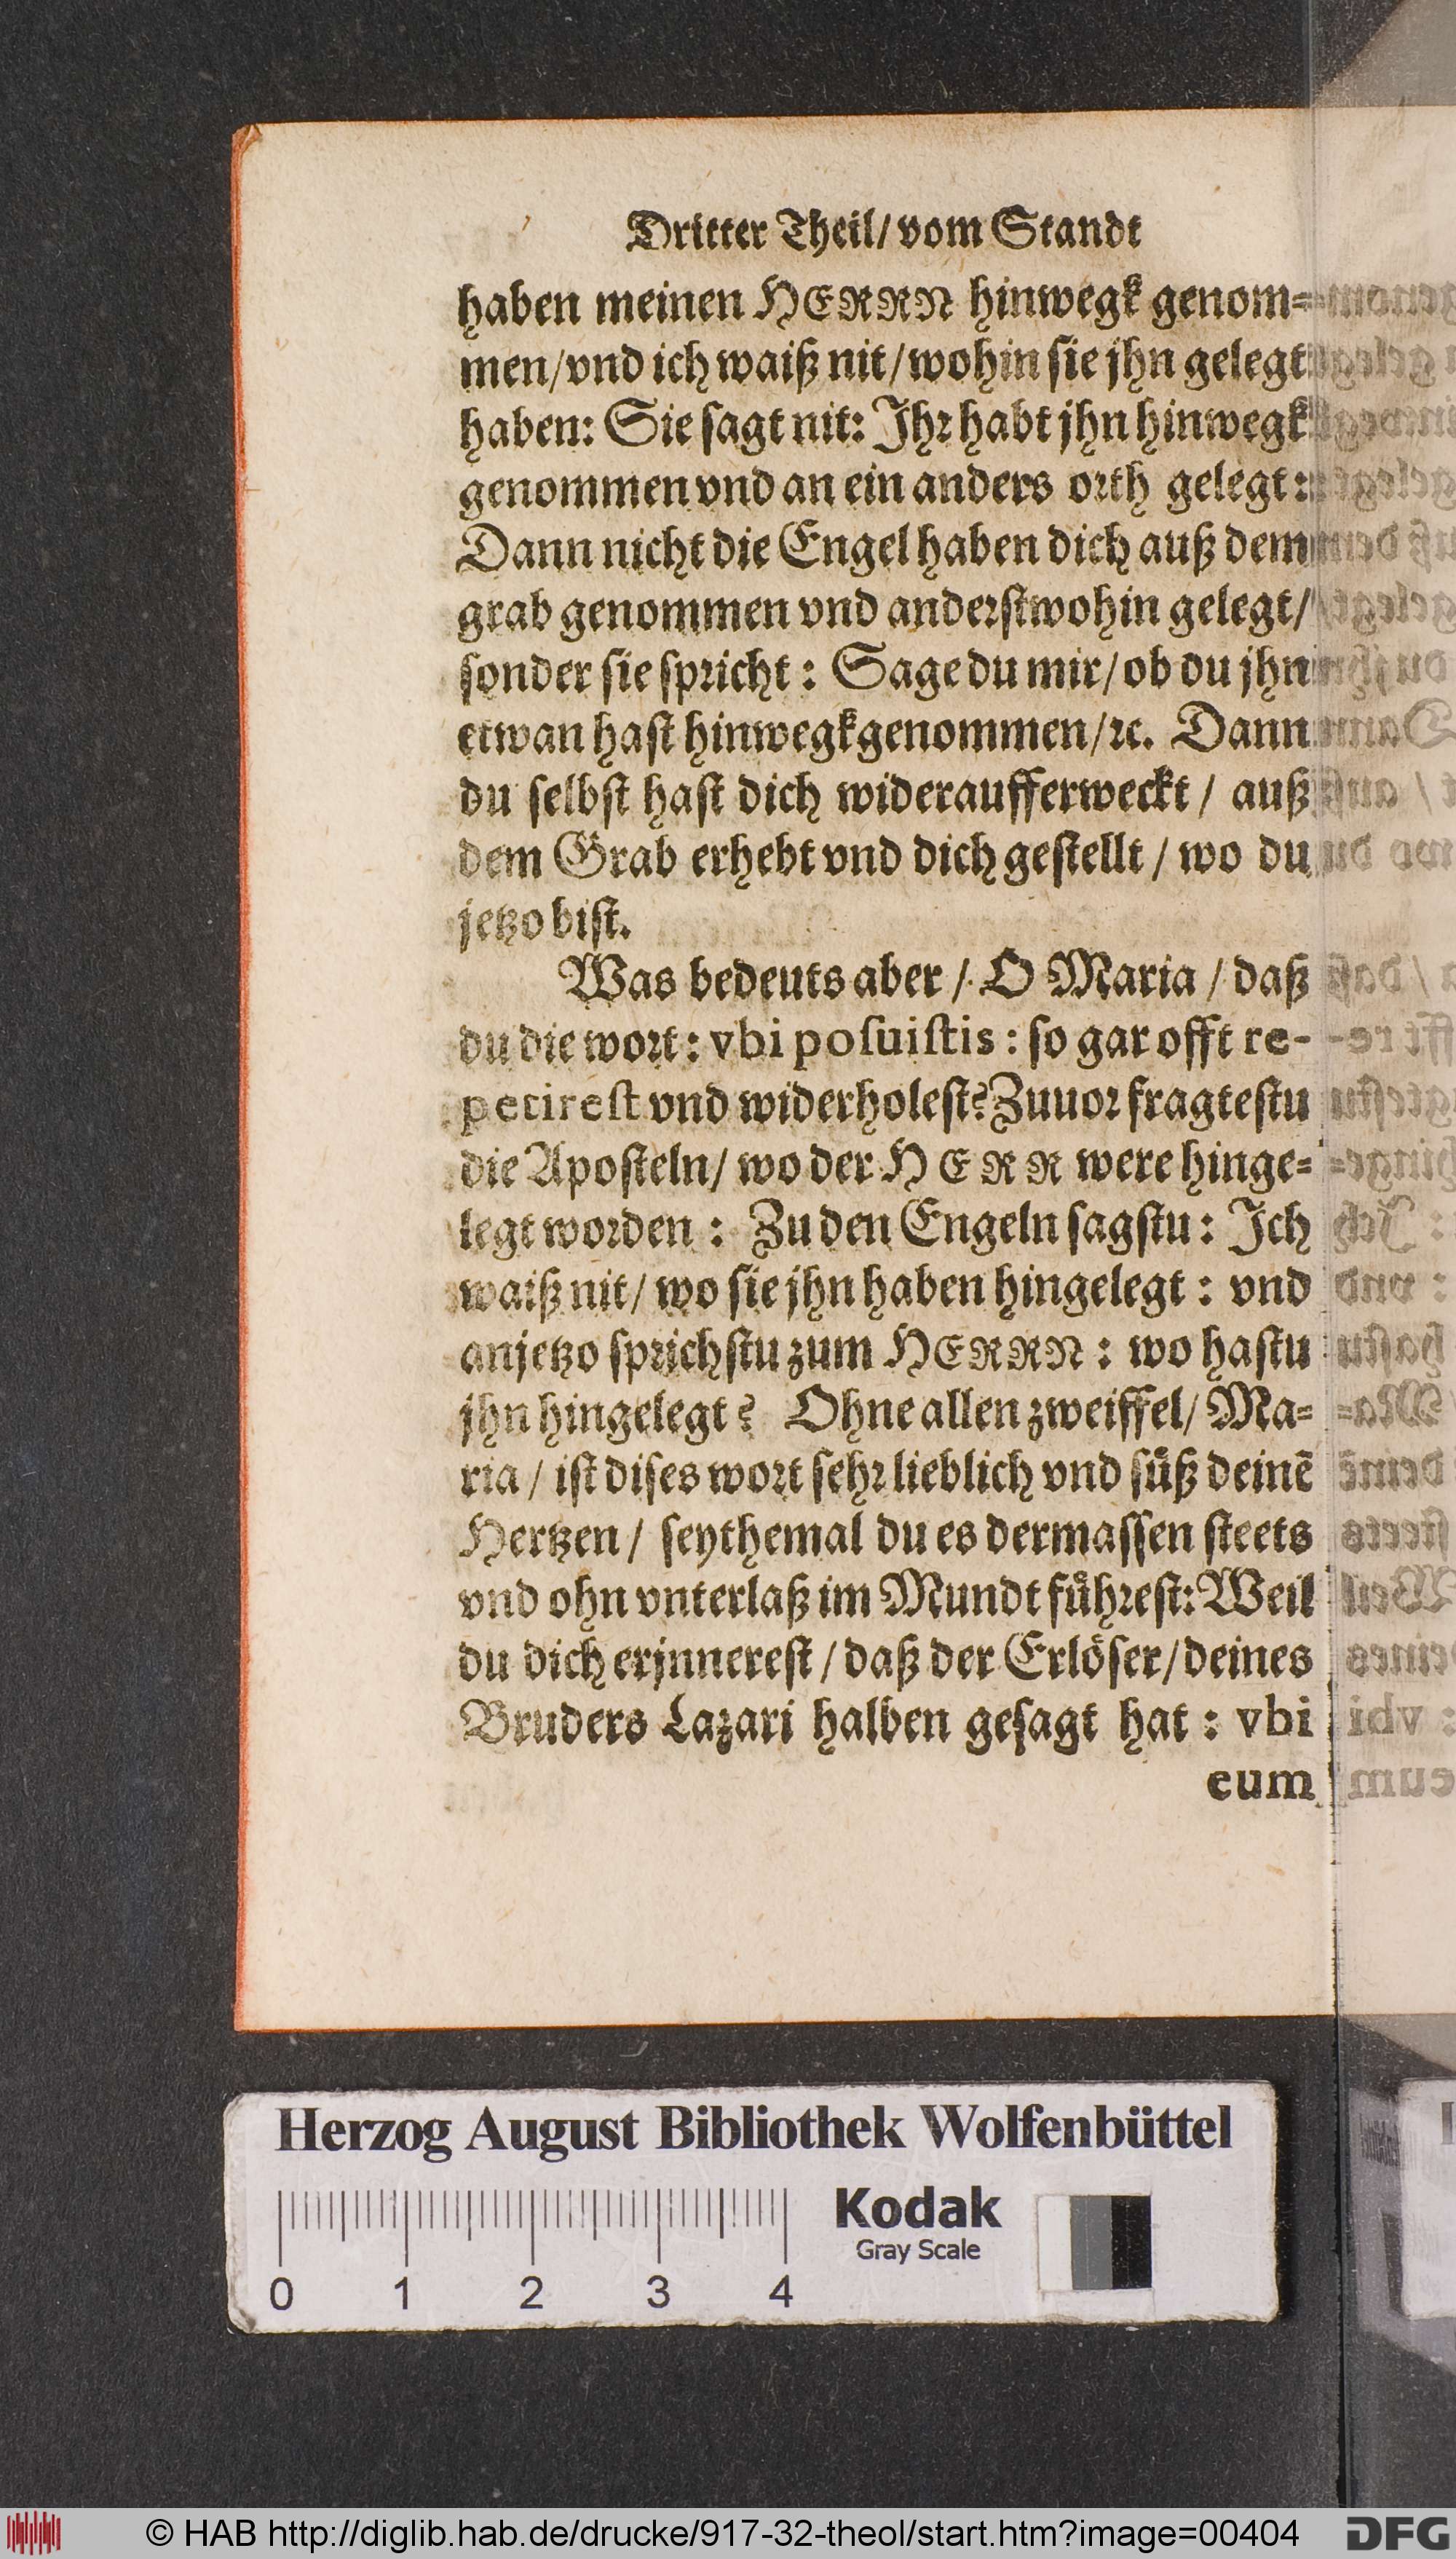 Dritter Theil/ vom Standt
haben meinen HERRN hinwegk genom⸗
men/vnd ich waiß nit/wohin sie jhn gelegt
haben: Sie sagt nit: Jhr habt jhn hinwegk
genommen vnd an ein anders orth gelegt:
Dann nicht die Engel haben dich auß dem
grab genommen vnd anderstwohin gelegt/
sonder sie spricht: Sage du mir/ ob du jhn
etwan hast hinwegkgenommen/ꝛc. Dann
du selbst hast dich wideraufferweckt / auß
dem Grab erhebt vnd dich gestellt / wo du
jetzo bist.
Was bedeuts aber / O Maria / daß
du die wort: vbi posuistis: so gar offt re-
petirest vnd widerholest? Zuuor fragtestu
die Aposteln/ wo der HERR were hinge⸗
legt worden: Zu den Engeln sagstu: Jch
waiß nit/ wo sie jhn haben hingelegt: vnd
anjetzo sprichstu zum HERRN: wo hastu
jhn hingelegt? Ohne allen zweiffel/ Ma⸗
ria / ist dises wort sehr lieblich vnd süß deinẽ
Hertzen/ seythemal du es dermassen steets
vnd ohn vnterlaß im Mundt führest: Weil
du dich erjnnerest / daß der Erlöser/ deines
Bruders Lazari halben gesagt hat: vbi
eum
Herzog August Bibliothek Wolfenbüttel
Kodak
Gray Scale
0 1 2 3 4
© HAB http://diglib.hab.de/drucke/917-32-theol/start.htm?image=00404
DFG